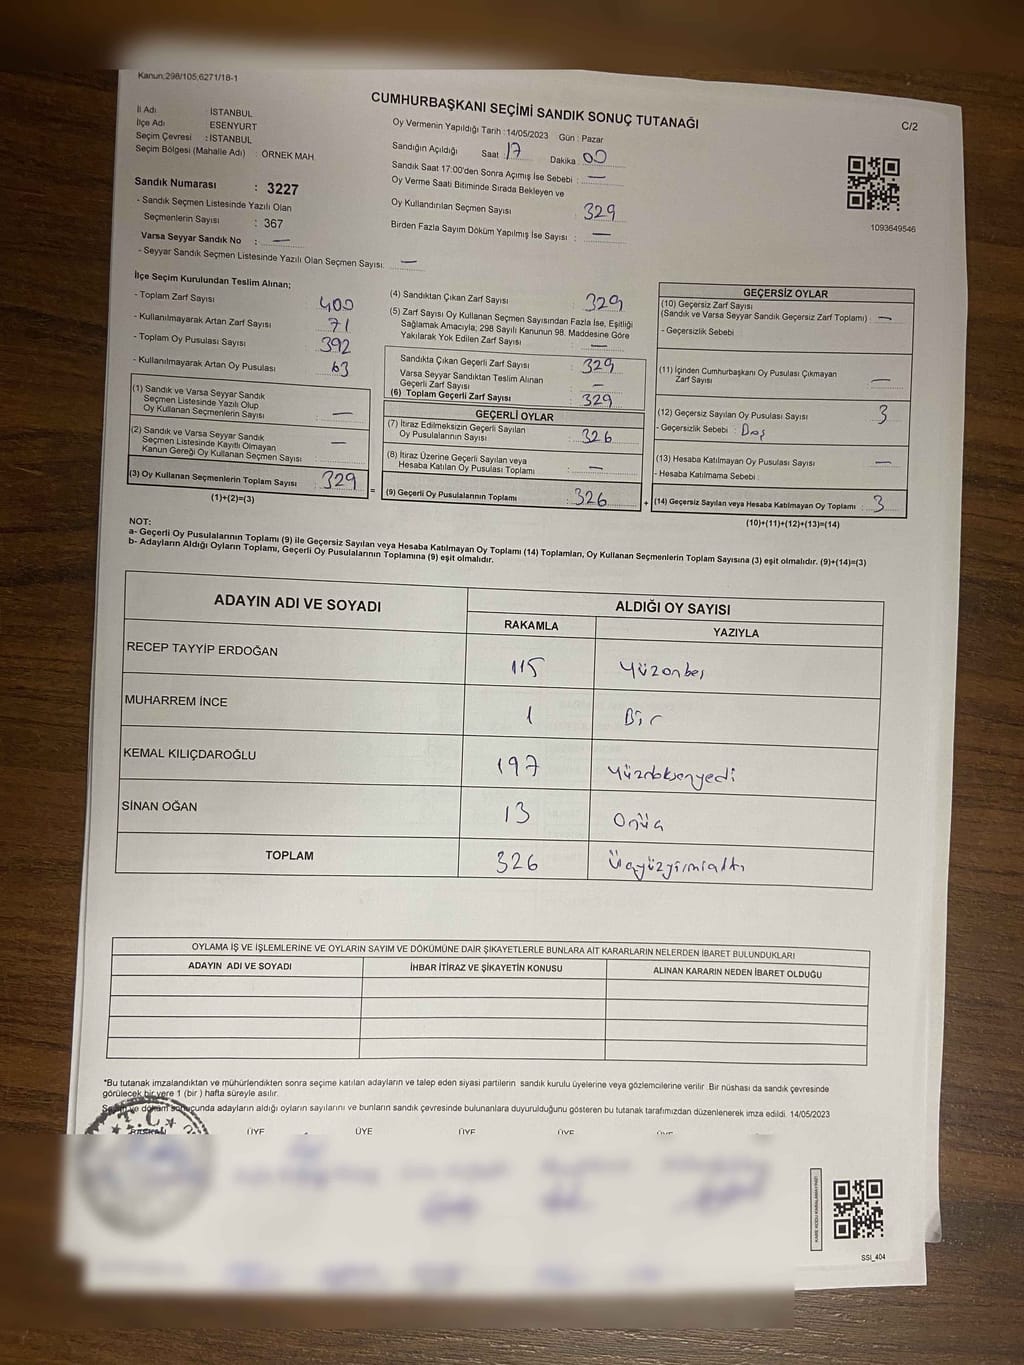 Kanun:298/105;6271/18-1
CUMHURBAŞKANI SEÇİMİ SANDIK SONUÇ TUTANAĞI
C/2
İl Adı : İSTANBUL
İlçe Adı : ESENYURT
Seçim Çevresi : İSTANBUL
Seçim Bölgesi (Mahalle Adı) : ÖRNEK MAH.
Sandık Numarası : 3227
- Sandık Seçmen Listesinde Yazılı Olan
Seçmenlerin Sayısı : 367
Varsa Seyyar Sandık No : —
- Seyyar Sandık Seçmen Listesinde Yazılı Olan Seçmen Sayısı: —
Oy Vermenin Yapıldığı Tarih :14/05/2023 Gün : Pazar
Sandığın Açıldığı Saat : 17 Dakika : 00
Sandık Saat 17:00'den Sonra Açımış İse Sebebi : —
Oy Verme Saati Bitiminde Sırada Bekleyen ve
Oy Kullandırılan Seçmen Sayısı : 329
Birden Fazla Sayım Döküm Yapılmış İse Sayısı : —
1093649546
İlçe Seçim Kurulundan Teslim Alınan;
- Toplam Zarf Sayısı : 400
- Kullanılmayarak Artan Zarf Sayısı : 71
- Toplam Oy Pusulası Sayısı : 392
- Kullanılmayarak Artan Oy Pusulası : 63
(1) Sandık ve Varsa Seyyar Sandık
Seçmen Listesinde Yazılı Olup
Oy Kullanan Seçmenlerin Sayısı : —
(2) Sandık ve Varsa Seyyar Sandık
Seçmen Listesinde Kayıtlı Olmayan
Kanun Gereği Oy Kullanan Seçmen Sayısı : —
(3) Oy Kullanan Seçmenlerin Toplam Sayısı : 329
(1)+(2)=(3)
(4) Sandıktan Çıkan Zarf Sayısı : 329
(5) Zarf Sayısı Oy Kullanan Seçmen Sayısından Fazla İse, Eşitliği
Sağlamak Amacıyla; 298 Sayılı Kanunun 98. Maddesine Göre
Yakılarak Yok Edilen Zarf Sayısı : —
Sandıkta Çıkan Geçerli Zarf Sayısı : 329
Varsa Seyyar Sandıktan Teslim Alınan
Geçerli Zarf Sayısı : —
(6) Toplam Geçerli Zarf Sayısı : 329
GEÇERLİ OYLAR
(7) İtiraz Edilmeksizin Geçerli Sayılan
Oy Pusulalarının Sayısı : 326
(8) İtiraz Üzerine Geçerli Sayılan veya
Hesaba Katılan Oy Pusulası Toplamı : —
=
(9) Geçerli Oy Pusulalarının Toplamı : 326
+
GEÇERSİZ OYLAR
(10) Geçersiz Zarf Sayısı
(Sandık ve Varsa Seyyar Sandık Geçersiz Zarf Toplamı) : —
- Geçersizlik Sebebi
(11) İçinden Cumhurbaşkanı Oy Pusulası Çıkmayan
Zarf Sayısı : —
(12) Geçersiz Sayılan Oy Pusulası Sayısı : 3
- Geçersizlik Sebebi : Boş
(13) Hesaba Katılmayan Oy Pusulası Sayısı : —
- Hesaba Katılmama Sebebi :
(14) Geçersiz Sayılan veya Hesaba Katılmayan Oy Toplamı : 3
(10)+(11)+(12)+(13)=(14)
NOT:
a- Geçerli Oy Pusulalarının Toplamı (9) ile Geçersiz Sayılan veya Hesaba Katılmayan Oy Toplamı (14) Toplamları, Oy Kullanan Seçmenlerin Toplam Sayısına (3) eşit olmalıdır. (9)+(14)=(3)
b- Adayların Aldığı Oyların Toplamı, Geçerli Oy Pusulalarının Toplamına (9) eşit olmalıdır.
ADAYIN ADI VE SOYADI ALDIĞI OY SAYISI
RAKAMLA YAZIYLA
RECEP TAYYİP ERDOĞAN 115 Yüzonbeş
MUHARREM İNCE 1 Bir
KEMAL KILIÇDAROĞLU 197 Yüzdoksanyedi
SİNAN OĞAN 13 Onüç
TOPLAM 326 Üçyüzyirmialtı
OYLAMA İŞ VE İŞLEMLERİNE VE OYLARIN SAYIM VE DÖKÜMÜNE DAİR ŞİKAYETLERLE BUNLARA AİT KARARLARIN NELERDEN İBARET BULUNDUKLARI
ADAYIN ADI VE SOYADI İHBAR İTİRAZ VE ŞİKAYETİN KONUSU ALINAN KARARIN NEDEN İBARET OLDUĞU
*Bu tutanak imzalandıktan ve mühürlendikten sonra seçime katılan adayların ve talep eden siyasi partilerin sandık kurulu üyelerine veya gözlemcilerine verilir. Bir nüshası da sandık çevresinde
görülecek bir yere 1 (bir) hafta süreyle asılır.
Seçim ve döküm sonucunda adayların aldığı oyların sayılarını ve bunların sandık çevresinde bulunanlara duyurulduğunu gösteren bu tutanak tarafımızdan düzenlenerek imza edildi. 14/05/2023
T.C.
ÜYE ÜYE ÜYE ÜYE ÜYE
SSI_404